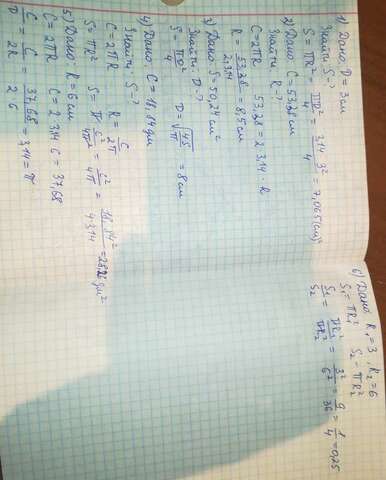 1) Дано: D = 3 см
Знайти S-?
S = πR² = πD²/4 = 3,14·3²/4 = 7,065 (см²)
2) Дано: C = 53,38 см
Знайти R-?
C = 2πR 53,38 = 2·3,14·R
R = 53,38/2·3,14 = 8,5 см
3) Дано: S = 50,24 см²
Знайти D-?
S = πD²/4 D = √4S/π = 8 см
4) Дано: C = 18,84 дм
Знайти: S-?
C = 2πR R = C/2π
S = πR² S = π C²/4π² = C²/4π = 18,84²/4·3,14 = 28,26 дм²
5) Дано: R = 6 см
C = 2πR C = 2·3,14·6 = 37,68
C/D = C/2R = 37,68/2·6 = 3,14 = π
6) Дано R₁ = 3, R₂ = 6
S₁ = πR₁² S₂ = πR₂²
S₁/S₂ = πR₁²/πR₂² = 3²/6² = 9/36 = 1/4 = 0,25